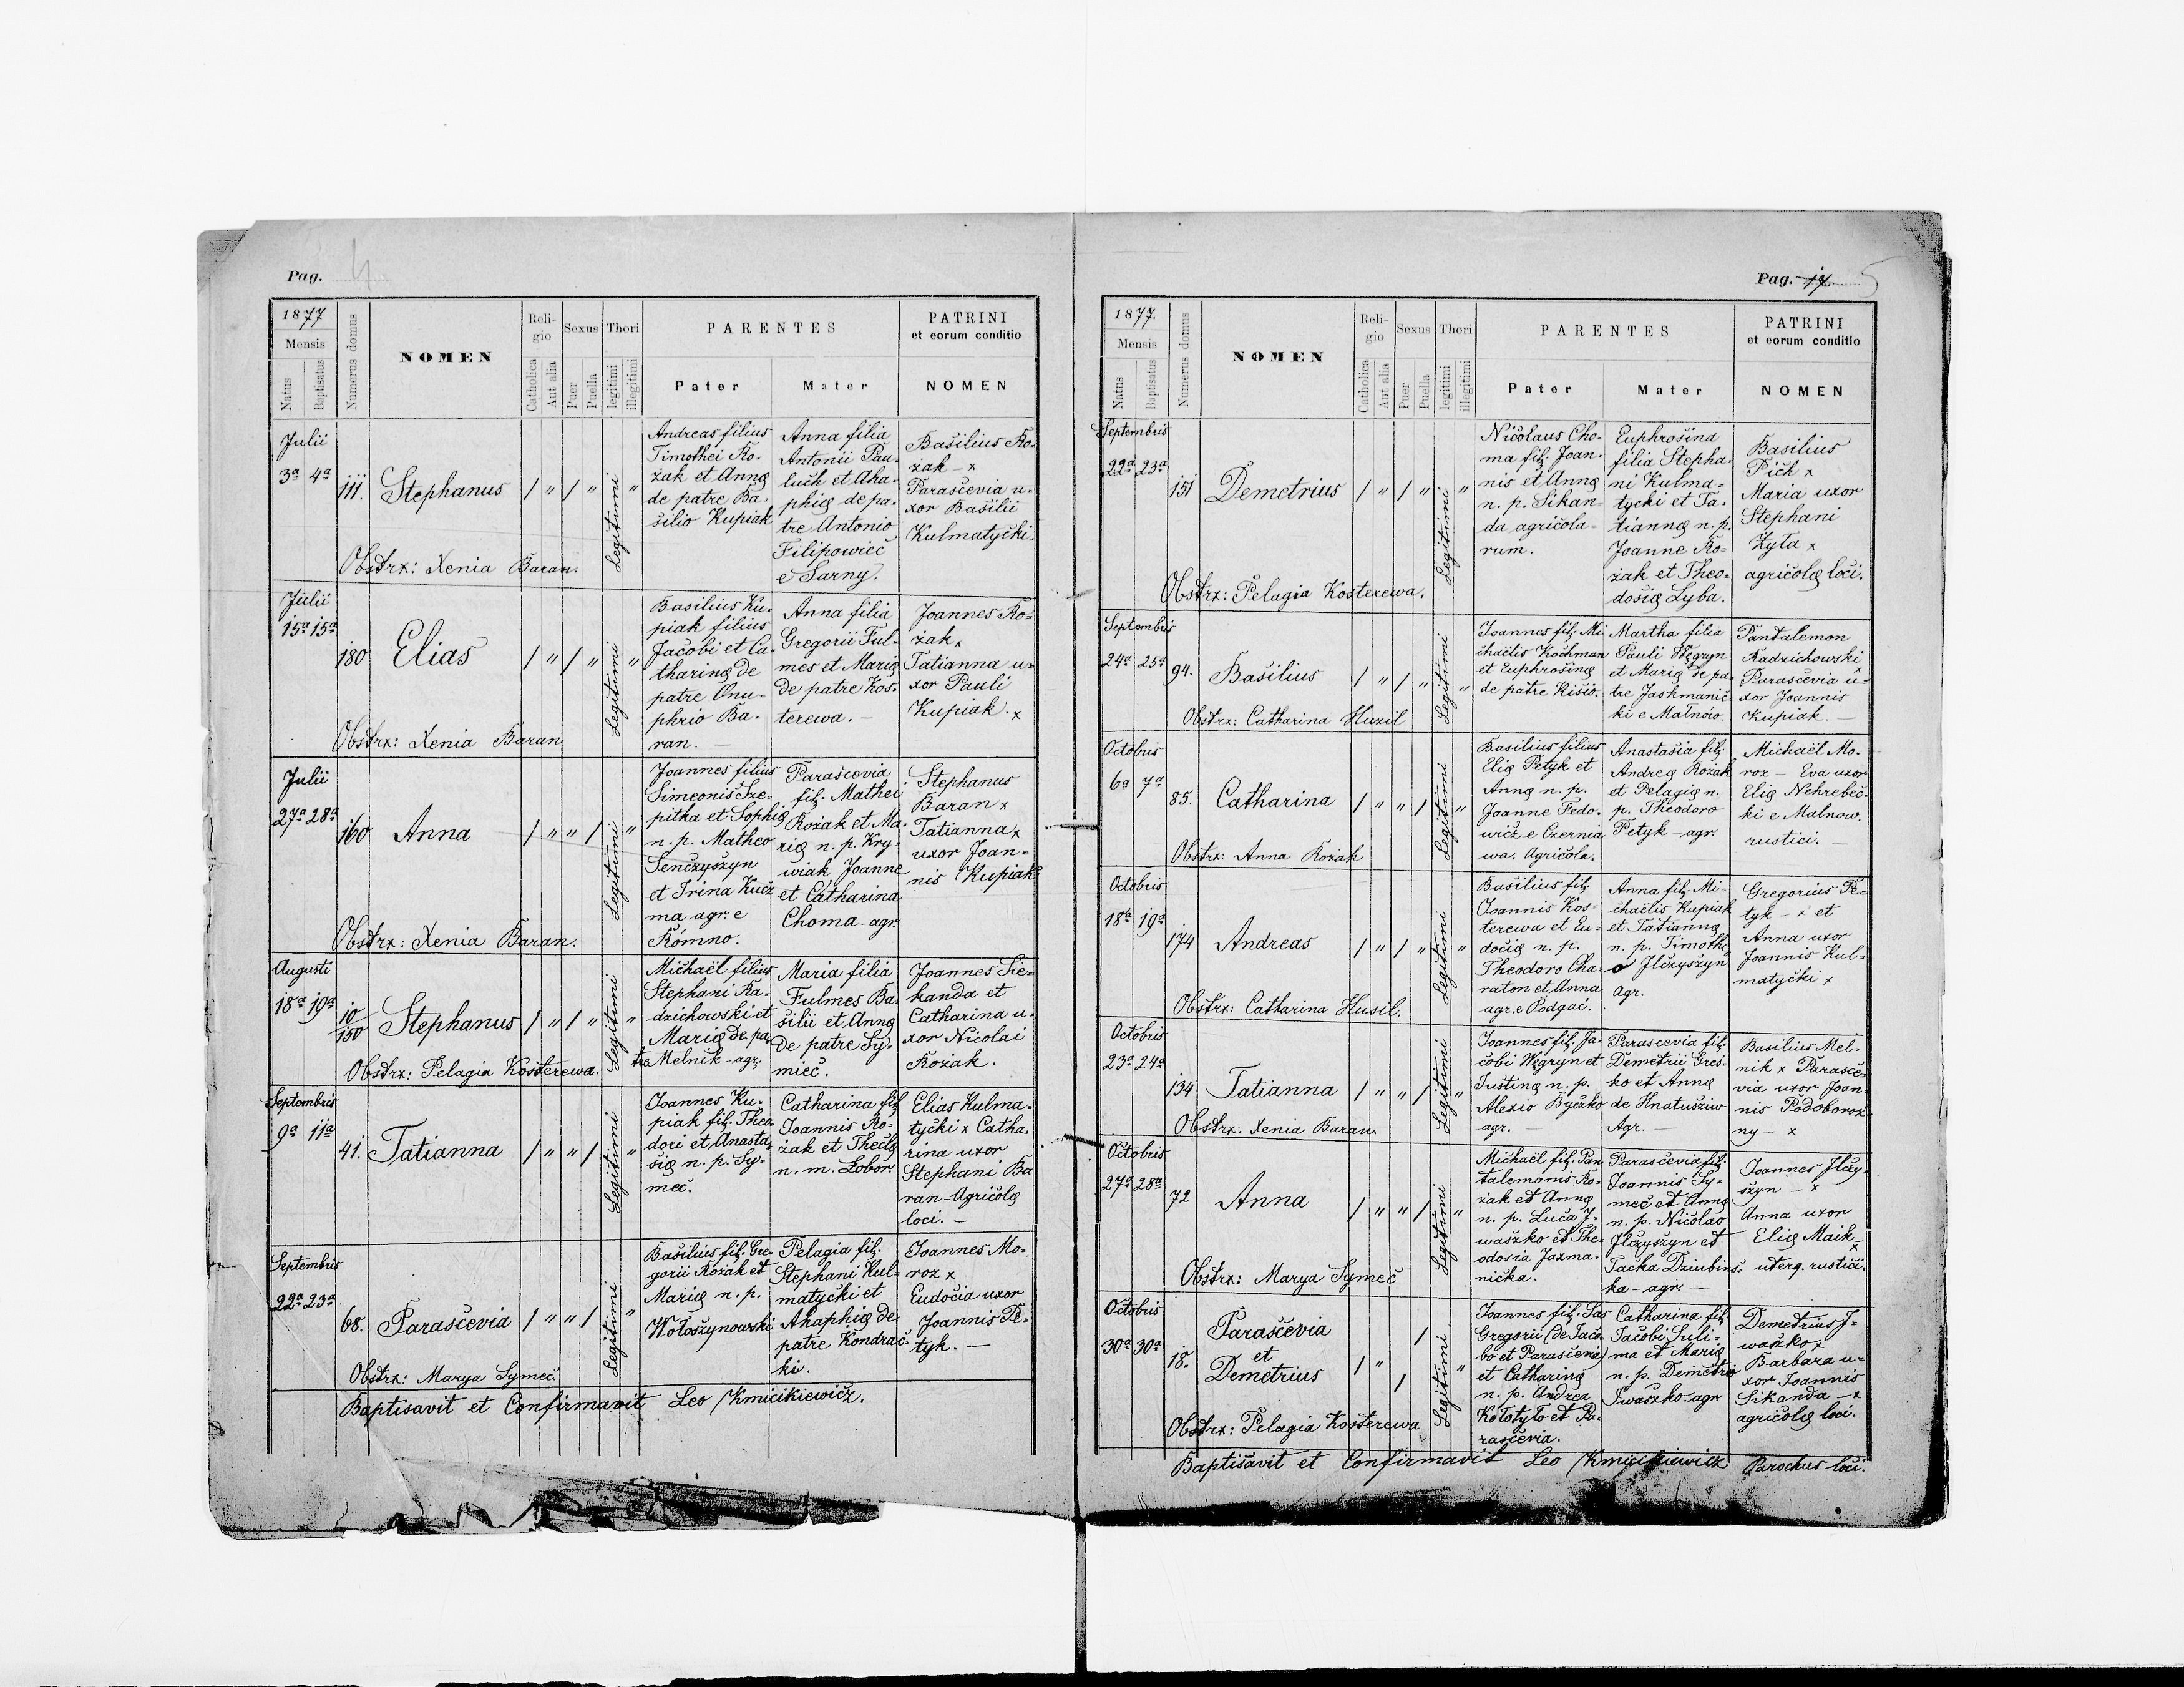 Pag. 4
1877
Mensis
Natus
Baptisatus
Numerus domus
NOMEN
Reli-
gio
Catholica
Aut alia
Sexus
Puer
Puella
Thori
legitimi
illegitimi
PARENTES
Pater
Mater
PATRINI
et eorum conditio
NOMEN
Julii
3a 4a
111.
Stephanus
/ " / " "
Legitimi
Andreas filius
Timothei Ro-
żak et Annę
de patre Ba-
silio Kupiak
Anna filia
Antonii Pau-
luch et Aha-
phię de pa-
tre Antonio
Filipowiec
e Sarny.
Basilius Ro-
żak - x
Parascevia u-
xor Basilii
Kulmatycki.
Obstrx: Xenia Baran.
Julii
15a 15a
180
Elias
/ " / " "
Legitimi
Basilius Ku-
piak filius
Jacobi et Ca-
tharinę de
patre Onu-
phrio Ba-
ran. —
Anna filia
Gregorii Ful-
mes et Marię
de patre Kos-
terewa. —
Joannes Ro-
żak x
Tatianna u-
xor Pauli
Kupiak. x
Obstrx: Xenia Baran
Julii
27a 28a
160
Anna
/ " " / "
Legitimi
Joannes filius
Simeonis Sze-
pitka et Sophię
n. p. Matheo
Senczyszyn
et Irina Kucz
ma agr. e
Rómno.
Parascevia
filj. Mathei
Rożak et Ma-
rię n. p. Kry-
wiak Joanne
et Catharina
Choma - agr.
Stephanus
Baran x
Tatianna x
uxor Joan-
nis Kupiak
Obstrx: Xenia Baran.
Augusti
18a 19a
10
150
Stephanus
/ " / " "
Legitimi
Michaël filius
Stephani Ra-
dzichowski et
Marię de pa-
tre Melnik - agr.
Maria filia
Fulmes Ba-
silii et Annę
de patre Sy-
mieć.
Joannes Sie-
kanda et
Catharina u-
xor Nicolai
Rożak.
Obstrx: Pelagia Kosterewa.
Septembris
9a 11a
41.
Tatianna
/ " " / "
Legitimi
Joannes Ku-
piak filj. Theo-
dori et Anasta-
się n. p. Sy-
meć.
Catharina filj
Joannis Ro-
żak et Theclę
n. m. Łobor.
Elias Kulma-
tycki x Catha-
rina uxor
Stephani Ba
ran - Agricolę
loci. —
Septembris
22a 23a
68.
Parascevia
/ " " / "
Legitimi
Basilius filj. Gre-
gorii Rożak et
Marię n. p.
Wołoszynowski
Pelagia filj.
Stephani Kul-
matycki et
Ahaphię de
patre Kondrac-
ki.
Joannes Mo-
roz x
Eudocia uxor
Joannis Pe-
tyk. —
Obstrx: Marya Symeć.
Baptisavit et Confirmavit Leo Kmicikiewicz.
Pag. 17 5
1877.
Mensis
Natus
Baptisatus
Numerus domus
NOMEN
Reli-
gio
Catholica
Aut alia
Sexus
Puer
Puella
Thori
legitimi
illegitimi
PARENTES
Pater
Mater
PATRINI
et eorum conditio
NOMEN
Septembris
22a 23a
151
Demetrius
/ " / " "
Legitimi
Nicolaus Cho-
ma filj. Joan-
nis et Annę
n. p. Sikan-
da agricola-
rum.
Euphrosina
filia Stepha-
ni Kulma-
tycki et Ta-
tiannę n. p.
Joanne Ro-
żak et Theo-
dosię Lyba.
Basilius
Pich x
Maria uxor
Stephani
Żyła x
agricolę loci.
Obstrx: Pelagia Kosterewa.
Septembris
24a 25a
94.
Basilius
/ " / " "
Legitimi
Joannes filj. Mi
chaëlis Kochman
et Euphrosinę
de patre Kisio.
Martha filia
Pauli Węgryn
et Marię de pa-
tre Jaskmanic-
ki e Małnów.
Pantalemon
Radzichowski
x
Parascevia u-
xor Joannis
Kupiak. —
Obstrx: Catharina Huzil
Octobris
6a 7a
85.
Catharina
/ " " / "
Legitimi
Basilius filius
Elię Petyk et
Annę n. p.
Joanne Fedo-
wicz e Czernia
wa. Agricola.
Anastasia filj.
Andreę Rożak
et Pelagię n.
p. Theodoro
Petyk - agr.
Michaël Mo-
roz — Eva uxor
Elię Nehrebec-
ki e Malnow.
rustici. —
Obstrx: Anna Rożak
Octobris
18a 19a
174
Andreas
/ " / " "
Legitimi
Basilius filj.
Joannis Kos-
terewa et Eu-
docię n. p.
Theodoro Cha-
raton et Anna
agr. e Podgać.
Anna filj. Mi-
chaëlis Kupiak
et Tatiannę
n. p. Timothe
o Ilczyszyn
Agr.
Gregorius Pe-
tyk - x et
Anna uxor
Joannis Kul-
matycki x
Obstrx: Catharina Husil.
Octobris
23a 24a
134
Tatianna
/ " " / "
Legitimi
Joannes filj. Ja-
cobi Węgryn et
Justinę n. p.
Alexio Byczko
agr. —
Parascevia filj.
Demetrii Gres-
ko et Annę
de Hnatusziw
Agr. —
Basilius Mel-
nik x Parasce-
via uxor Joan-
nis Podoboroz-
ny — x
Obstrx: Xenia Baran.
Octobris
27a 28a
72
Anna
/ " " / "
Legitimi
Michaël filj. Pan
talemonis Ro-
żak et Annę
n. p. Luca I-
waszko et The-
odosia Jaxma-
nicka.
Parascevia filj.
Joannis Sy-
meć et Annę
n. p. Nicolao
Ilczyszyn et
Tacka Dziubins-
ka - agr. —
Joannes Ilczy-
szyn — x
Anna uxor
Elię Maik —
x
uterq. rustici.
Obstrx: Marya Symeć
Octobris
30a 30a
18.
Parascevia
et
Demetrius
/ " / / "
Legitimi
Joannes filj. Sas
Gregorii (de Jaco-
bo et Parascevia)
et Catharinę
n. p. Andrea
Kołotyło et Pa-
rascevia.
Catharina filj
Jacobi Suli-
ma et Marię
n. p. Demetrio
Iwaszko - agr
Demetrius I-
waszko x
Barbara u-
xor Joannis
Sikanda — x
agricolę loci.
Obstrx: Pelagia Kosterewa
Baptisavit et Confirmavit Leo Kmicikiewicz Parochus loci.